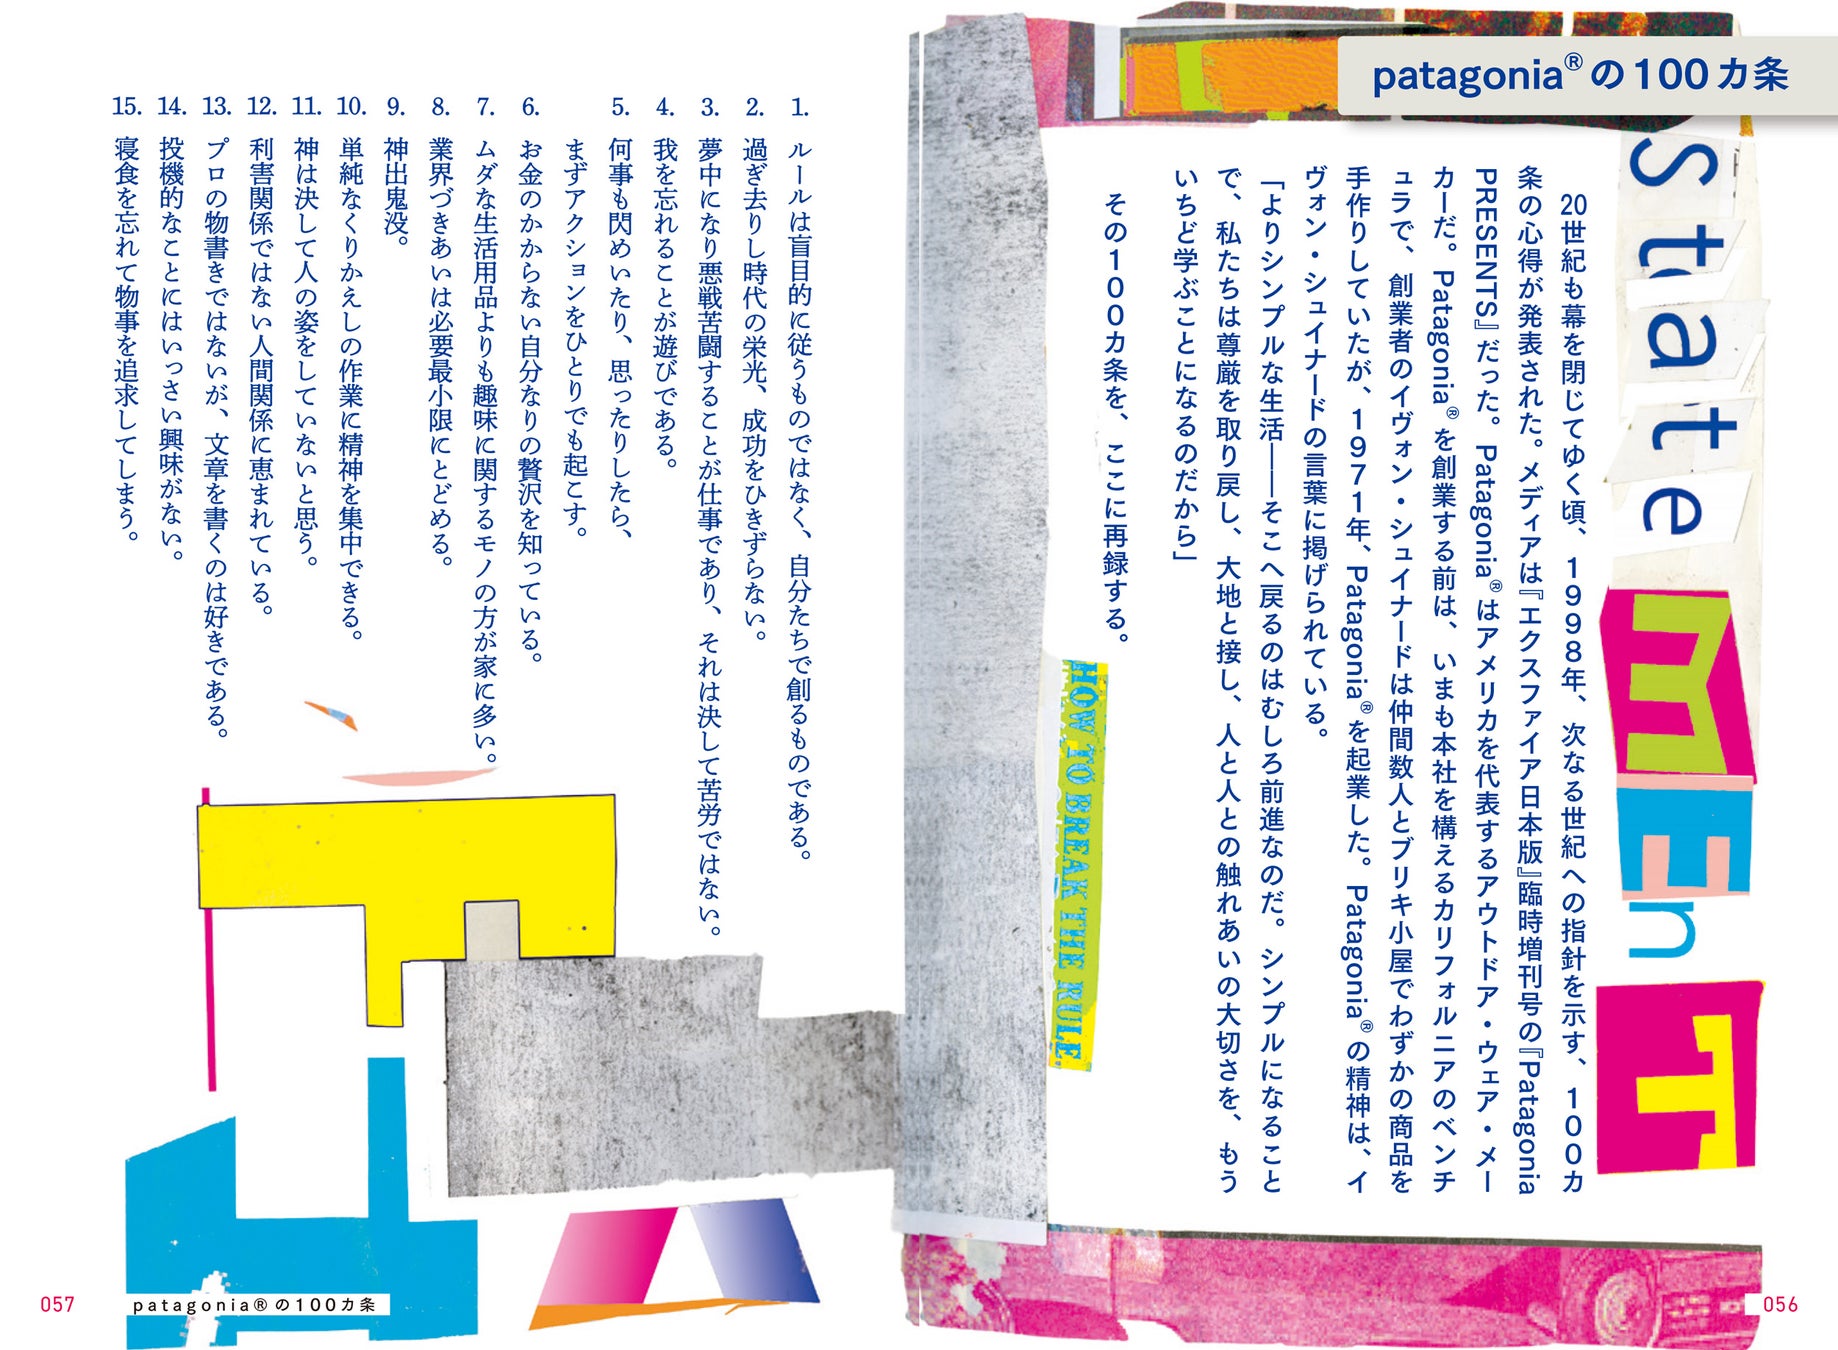 patagonia®の100カ条
Statement
20世紀も幕を閉じてゆく頃、1998年、次なる世紀への指針を示す、100カ
条の心得が発表された。メディアは『エクスファイア日本版』臨時増刊号の『Patagonia
PRESENTS』だった。Patagonia®はアメリカを代表するアウトドア・ウェア・メー
カーだ。Patagonia®を創業する前は、いまも本社を構えるカリフォルニアのベンチ
ュラで、創業者のイヴォン・シュイナードは仲間数人とブリキ小屋でわずかの商品を
手作りしていたが、1971年、Patagonia®を起業した。Patagonia®の精神は、イ
ヴォン・シュイナードの言葉に掲げられている。
「よりシンプルな生活――そこへ戻るのはむしろ前進なのだ。シンプルになること
で、私たちは尊厳を取り戻し、大地と接し、人と人との触れあいの大切さを、もう
いちど学ぶことになるのだから」
その100カ条を、ここに再録する。
HOW TO BREAK THE RULE
056
1. ルールは盲目的に従うものではなく、自分たちで創るものである。
2. 過ぎ去りし時代の栄光、成功をひきずらない。
3. 夢中になり悪戦苦闘することが仕事であり、それは決して苦労ではない。
4. 我を忘れることが遊びである。
5. 何事も閃めいたり、思ったりしたら、
まずアクションをひとりでも起こす。
6. お金のかからない自分なりの贅沢を知っている。
7. ムダな生活用品よりも趣味に関するモノの方が家に多い。
8. 業界づきあいは必要最小限にとどめる。
9. 神出鬼没。
10. 単純なくりかえしの作業に精神を集中できる。
11. 神は決して人の姿をしていないと思う。
12. 利害関係ではない人間関係に恵まれている。
13. プロの物書きではないが、文章を書くのは好きである。
14. 投機的なことにはいっさい興味がない。
15. 寝食を忘れて物事を追求してしまう。
patagonia®の100カ条
057